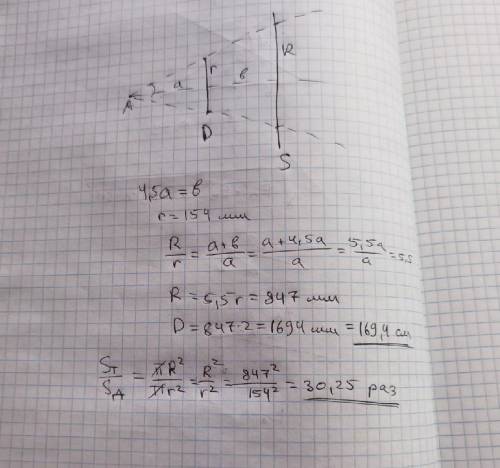 A a r в R
D
S
4,5a = в
r = 154 мм
R/r = (a+в)/a = (a+4,5a)/a = 5,5a/a = 5,5
R = 5,5r = 847 мм
D = 847·2 = 1694 мм = 169,4 см
Sт/Sд = πR²/πr² = R²/r² = 847²/154² = 30,25 раз